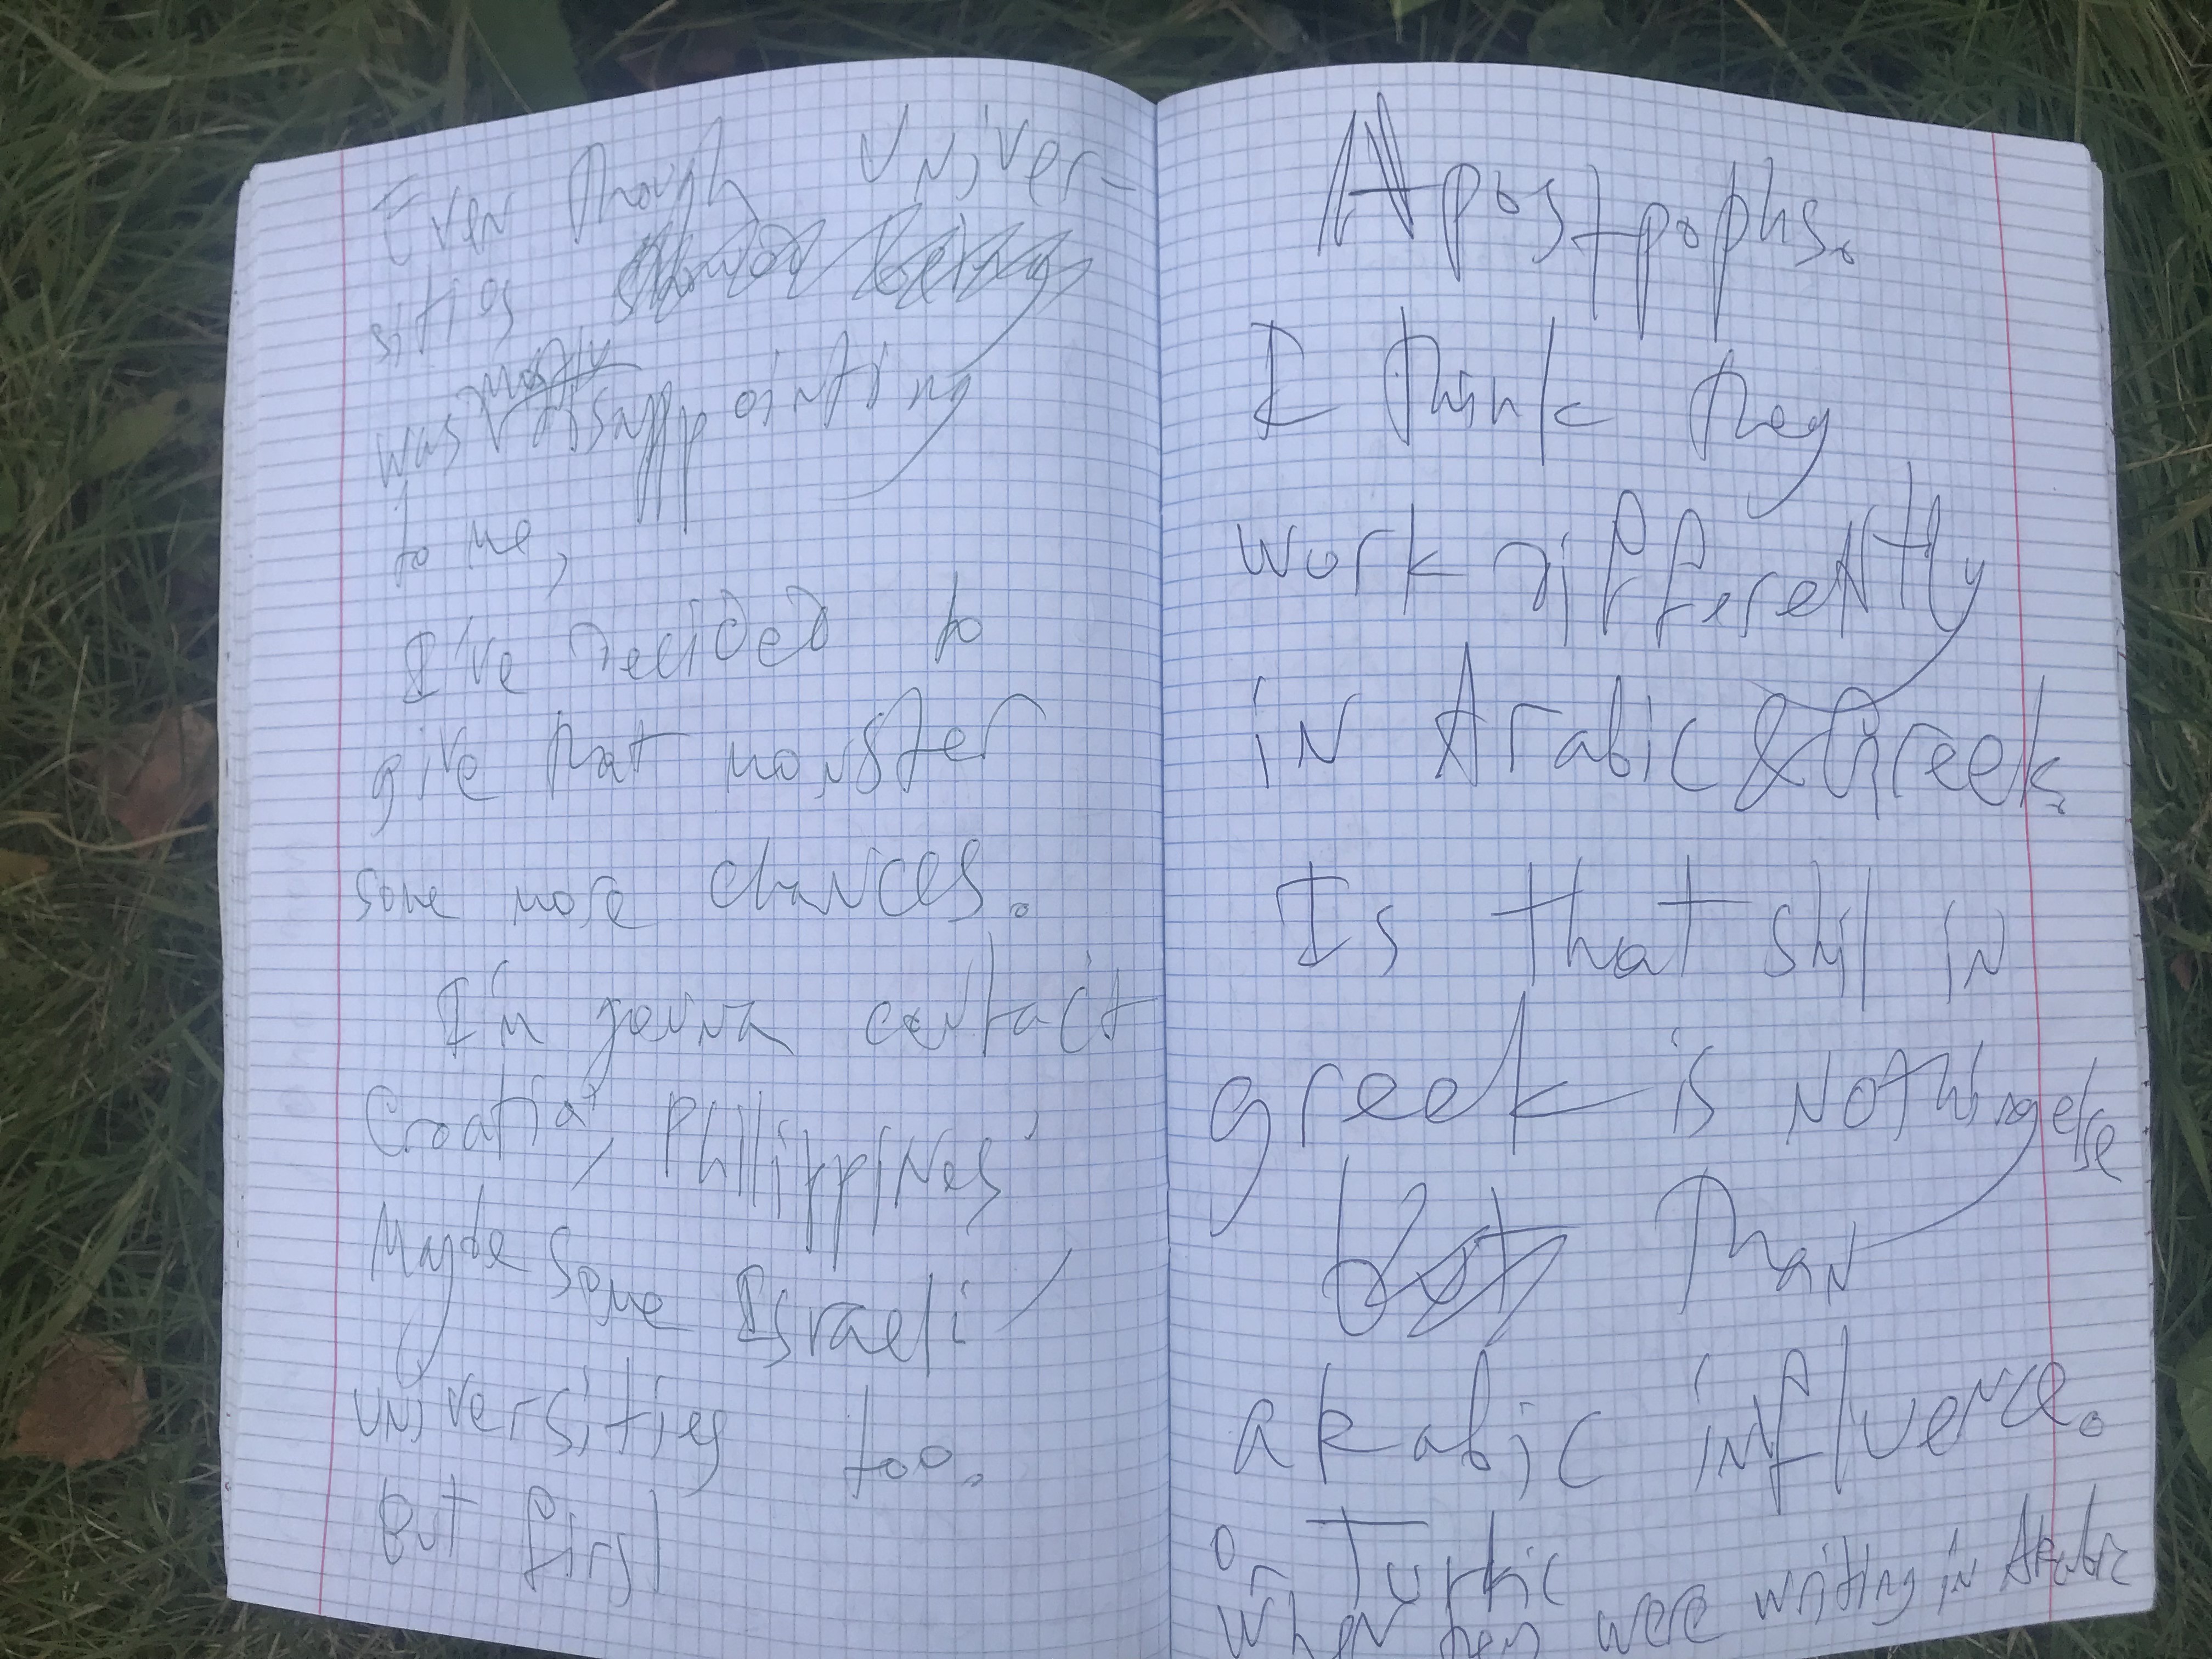 Even though Univer-
sities
was dissappointing
to me,
I've decided to
give that monster
some more chances.
I'm gonna contact
Croatia, Phillippines,
Maybe some Israeli
universitiey too.
But first
Apostrophs.
I think they
work differently
in Arabic & Greek.
Is that shyl in
greek is nothing else
but than
Arabic influence.
or Turkic
when they were writing in Arabic